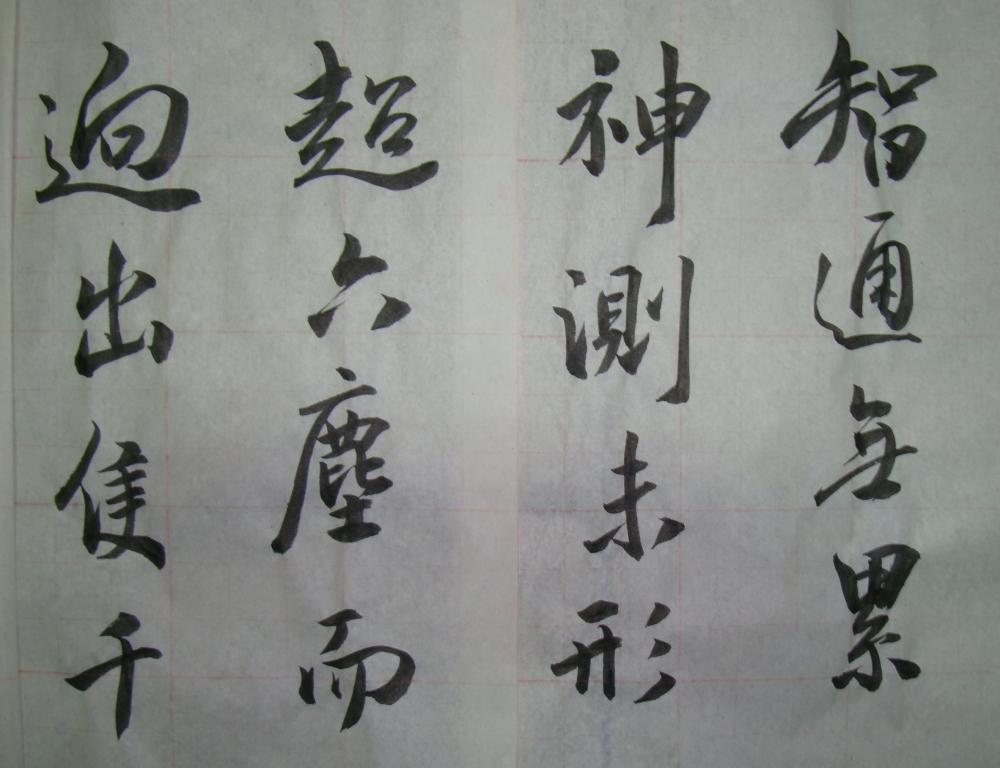 智通無累
神測未形
超六塵而
迥出隻千